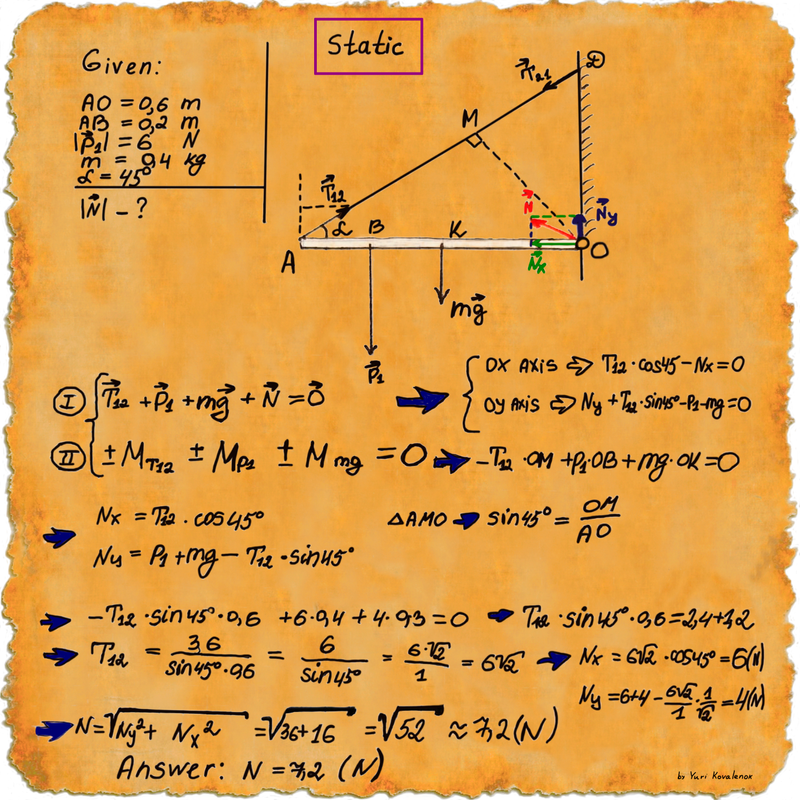 Static
Given:
AO = 0,6 m
AB = 0,2 m
|P⃗₁| = 6 N
m = 0,4 kg
α = 45°
|N⃗| – ?
T⃗₂₁
D
M
T⃗₁₂
N⃗
N⃗y
α
B
K
A
O
N⃗x
mg⃗
P⃗₁
I T⃗₁₂ + P⃗₁ + mg⃗ + N⃗ = 0⃗
OX Axis ⇨ T₁₂·cos45 – Nx = 0
OY Axis ⇨ Ny + T₁₂·sin45° – P₁ – mg = 0
II ± M T₁₂ ± M P₁ ± M mg = 0
– T₁₂·OM + P₁·OB + mg·OK = 0
Nx = T₁₂ · cos45°
Ny = P₁ + mg – T₁₂ · sin45°
ΔAMO sin45° = OM/AO
– T₁₂ · sin45° · 0,6 + 6·0,4 + 4·0,3 = 0
T₁₂ · sin45° · 0,6 = 2,4 + 1,2
T₁₂ = 3,6/sin45°·0,6 = 6/sin45° = 6·√2/1 = 6√2
Nx = 6√2 · cos45° = 6(N)
Ny = 6+4 – 6√2/1 · 1/√2 = 4(N)
N = √Ny² + Nx² = √36+16 = √52 ≈ 7,2 (N)
Answer: N = 7,2 (N)
by Yuri Kovalenok